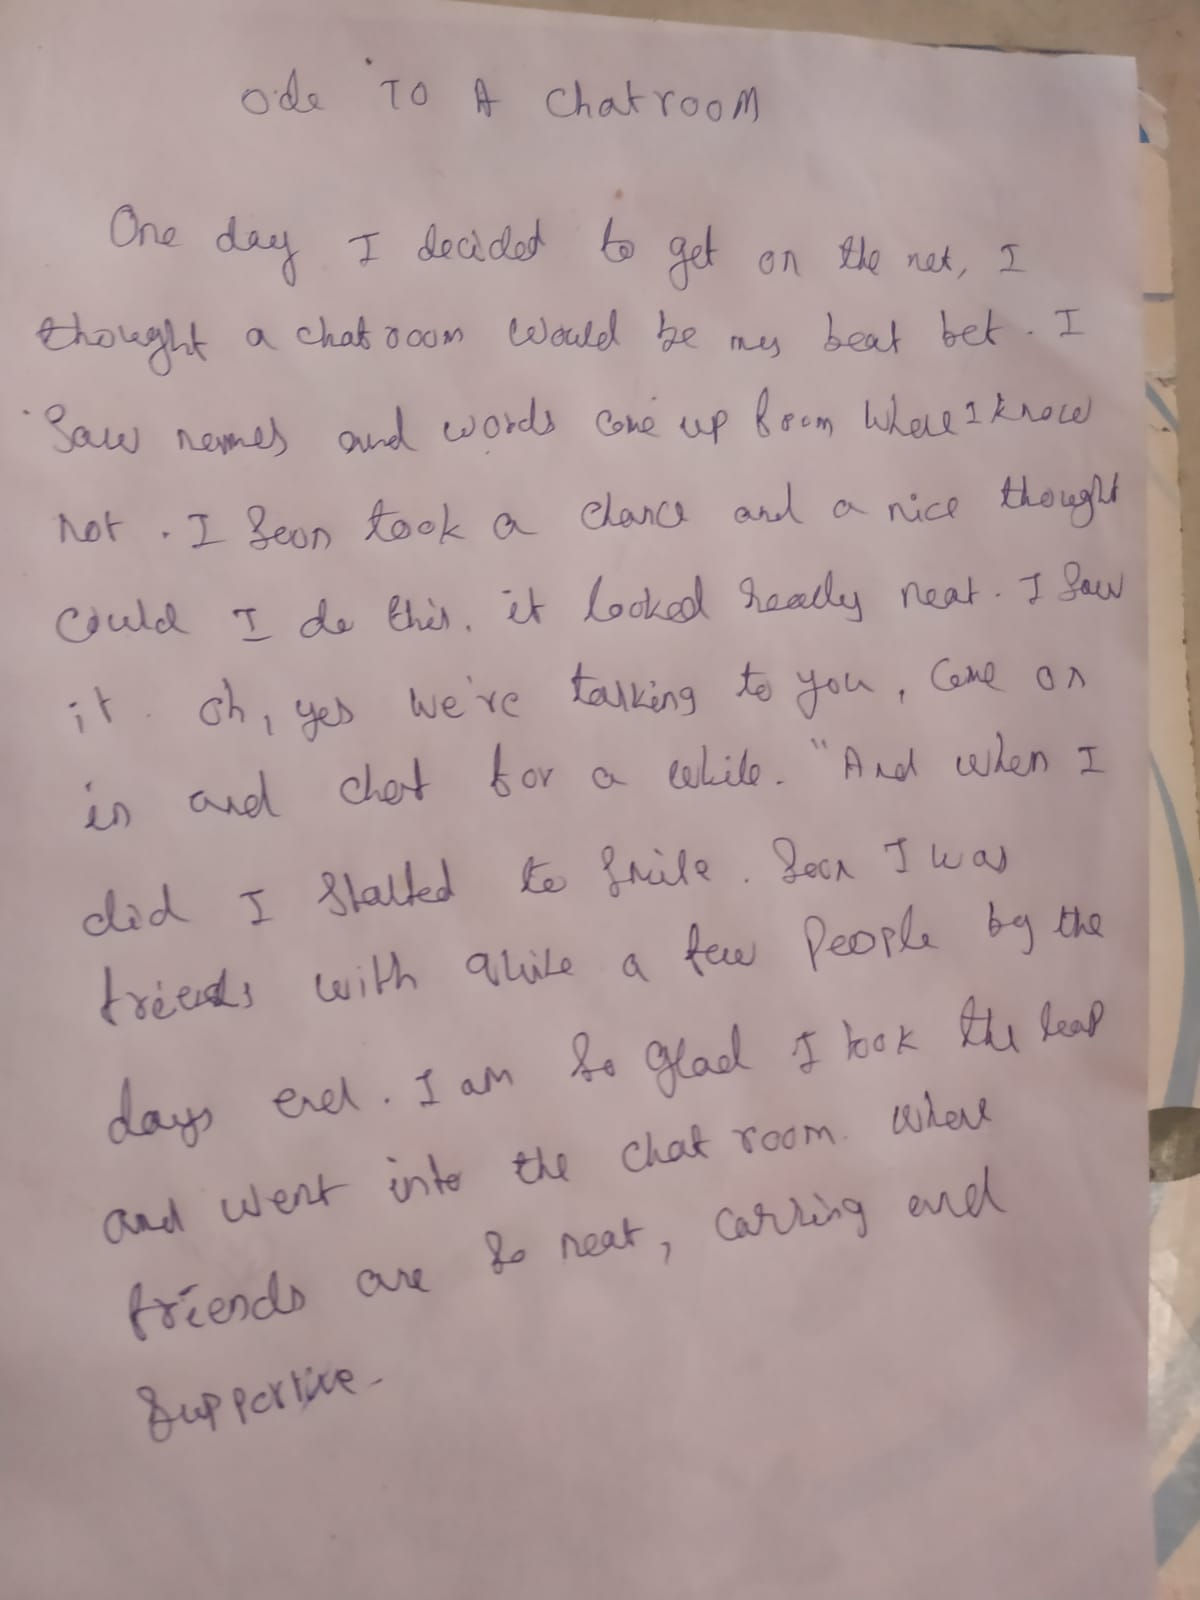 Ode TO A Chatroom
One day I decided to get on the net, I
thought a chat room would be my beat bet. I
Saw names and words come up from where I know
not. I Soon took a chance and a nice thought
could I do this. it looked really neat. I Saw
it. oh, yes we're talking to you, come on
in and chat for a while. "And when I
did I started to Smile. Soon I was
friends with quite a few People by the
days end. I am So glad I took the leap
and went into the chat room. where
friends are So neat, carring and
Supportive.